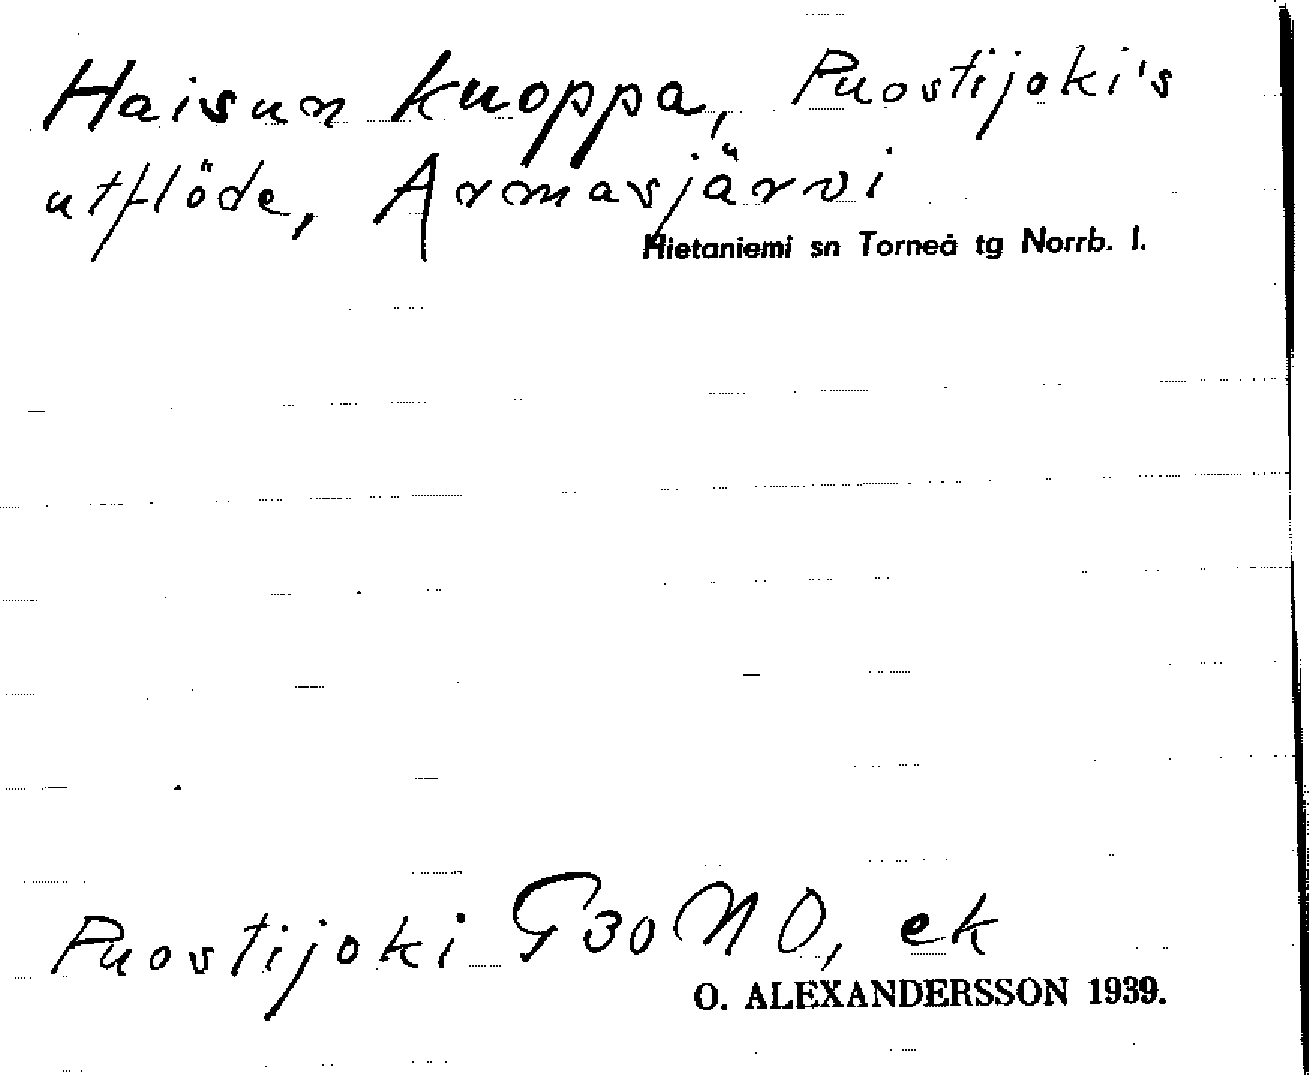 Haisun kuoppa, Puostijoki's
utflöde, Armasjärvi
Hietaniemi sn Torneå tg Norrb. l.
Puostijoki G 30 NO, ek
O. ALEXANDERSSON 1939.